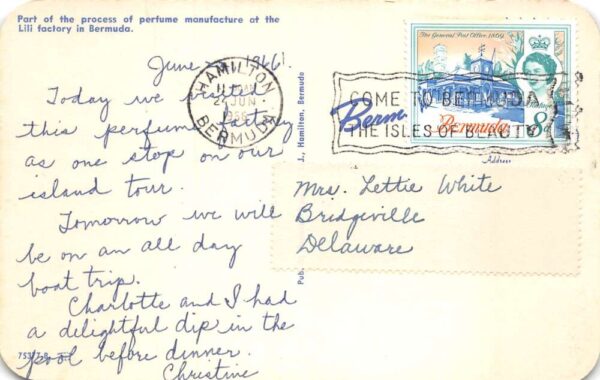 Part of the process of perfume manufacture at the
Lili factory in Bermuda.
June 1966
Today we visited
this perfume factory
as one stop on our
island tour.
Tomorrow we will
be on an all day
boat trip.
Charlotte and I had
a delightful dip in the
pool before dinner.
Christine
HAMILTON
24 JUN
1966
BERMUDA
The General Post Office 1869
COME TO BERMUDA
THE ISLES OF BEAUTY
Bermuda
8d
Berm
Address
Mrs. Lettie White
Bridgeville
Delaware
Hamilton, Bermuda